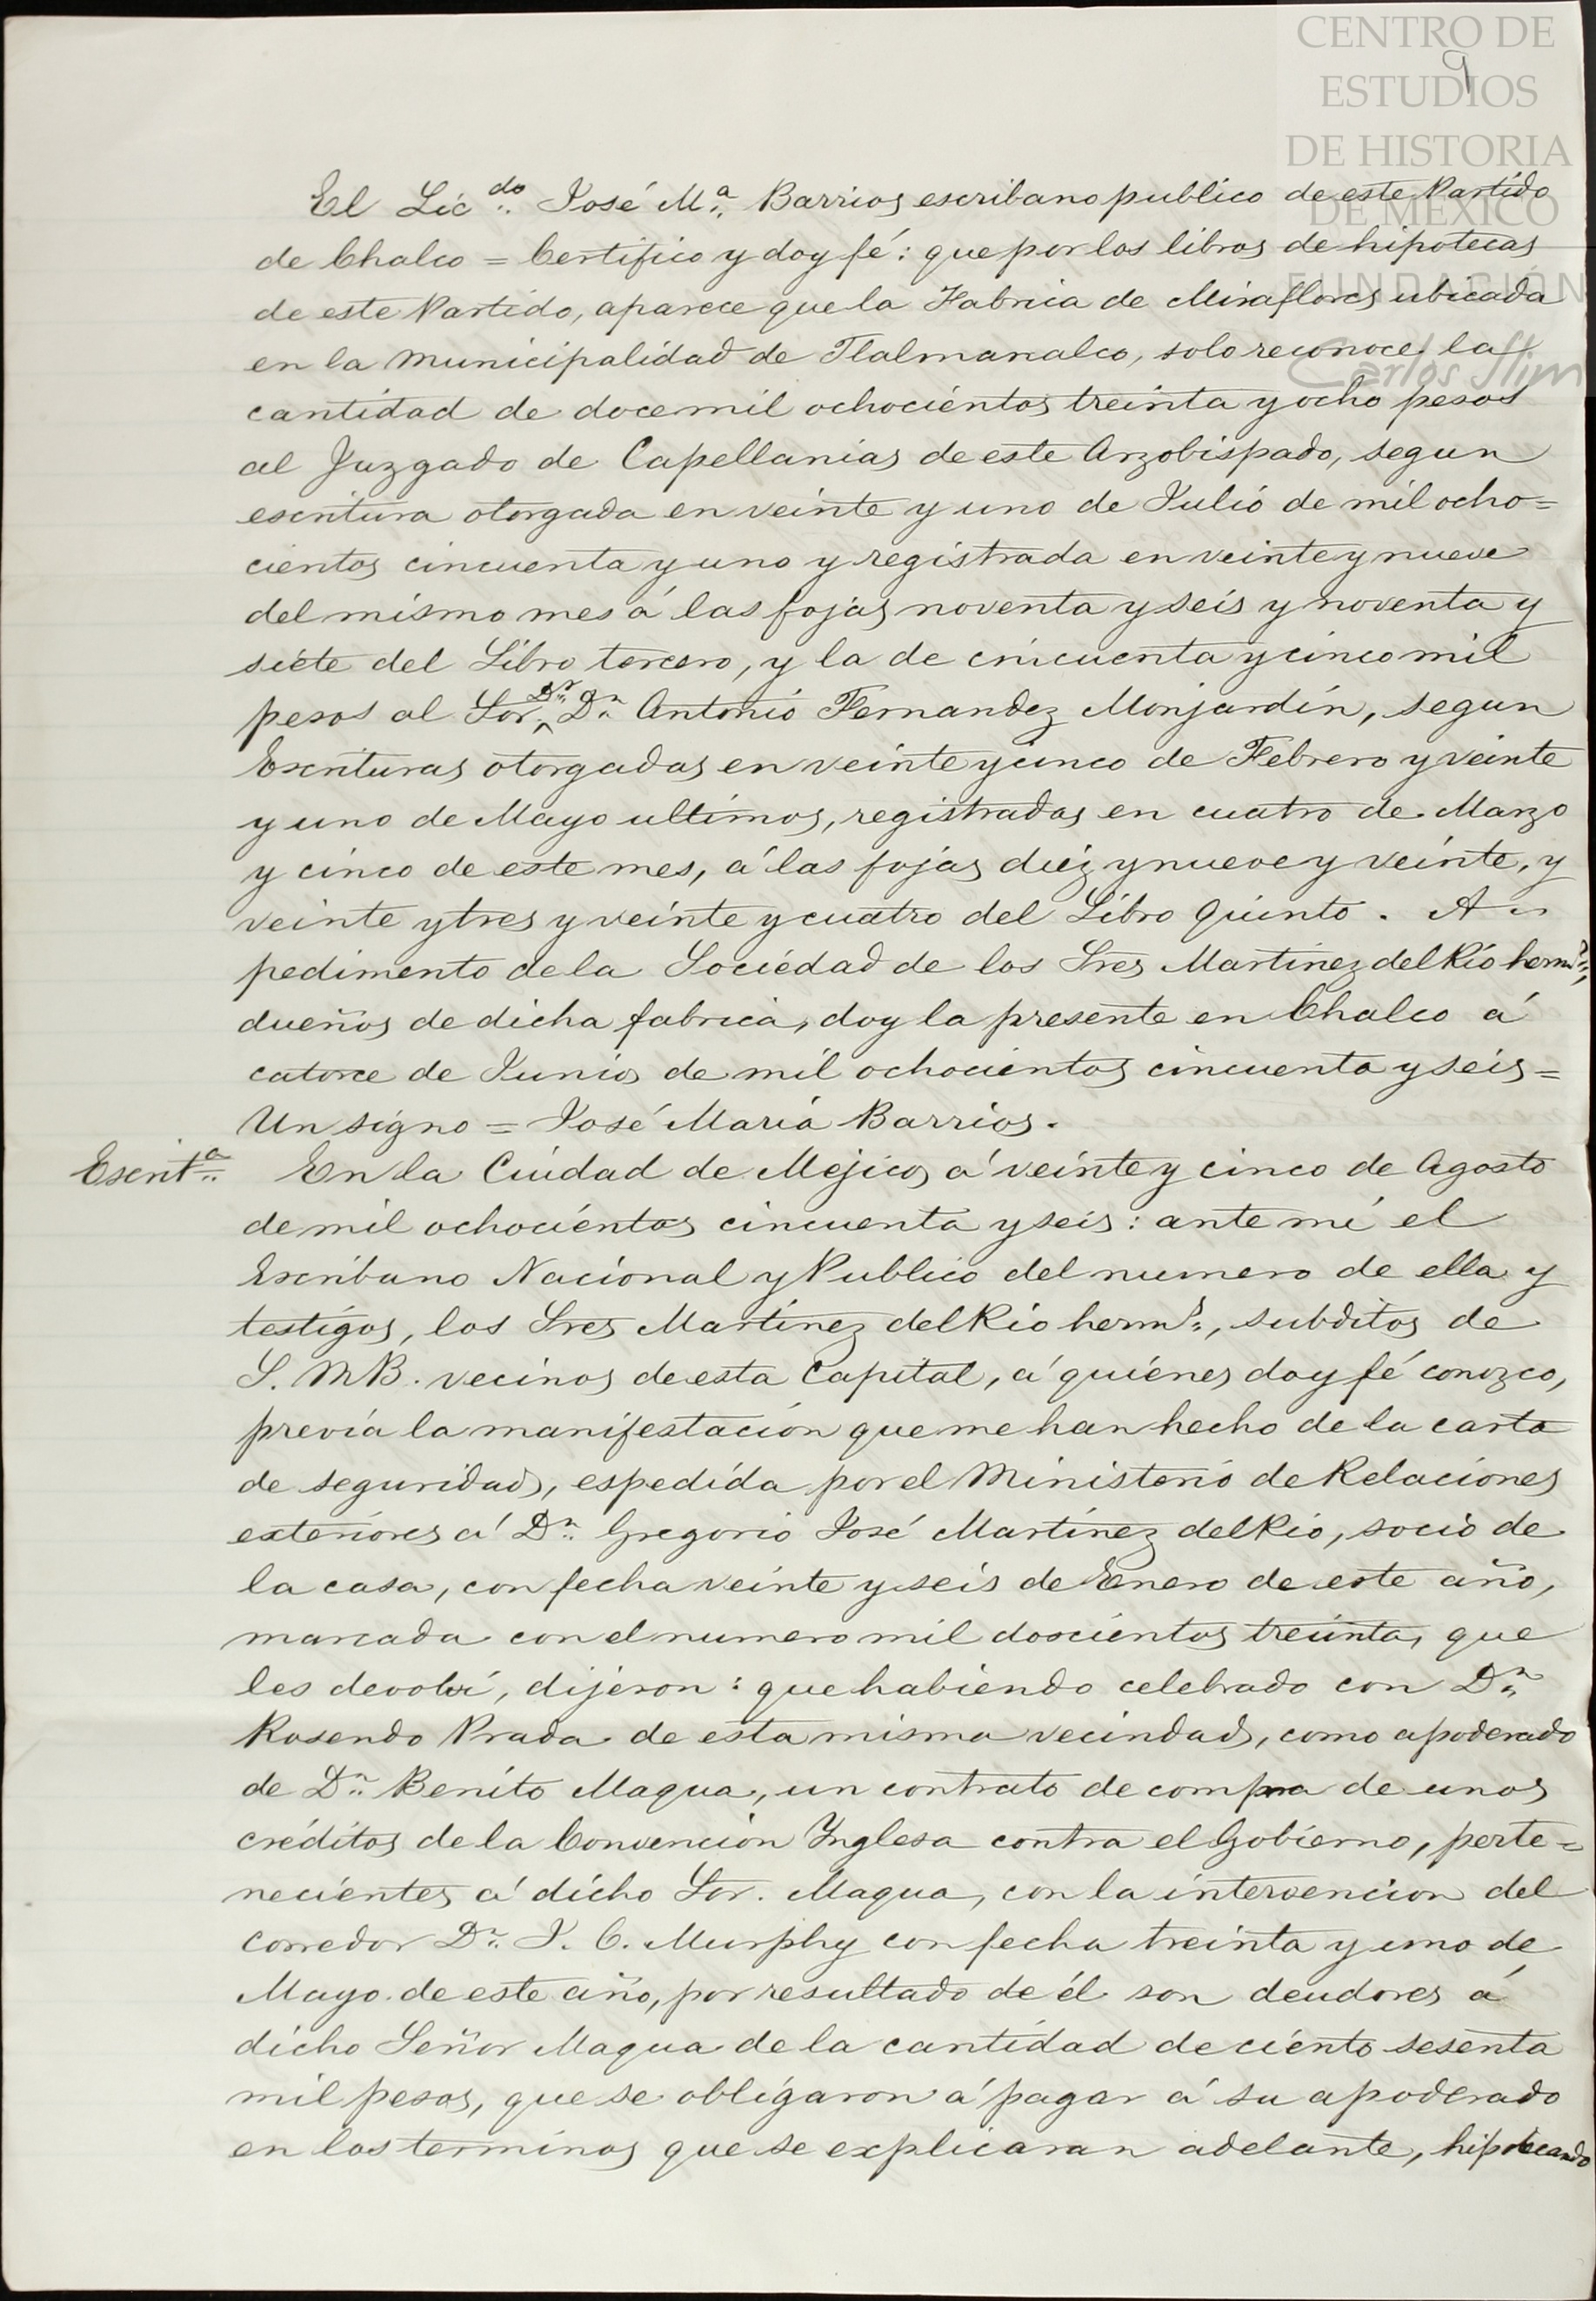 CENTRO DE
ESTUDIOS
DE HISTORIA
DE MÉXICO
FUNDACIÓN
Carlos Slim
9
El Lic.do José M.a Barrios escribano publico de este Partido
de Chalco = Certifico y doy fé: que por los libros de hipotecas
de este Partido, aparece que la Fabrica de Miraflores ubicada
en la Municipalidad de Tlalmanalco, solo reconoce la
cantidad de doce mil ochocientos treinta y ocho pesos
al Juzgado de Capellanias de este Arzobispado, segun
escritura otorgada en veinte y uno de Julio de mil ocho=
cientos cincuenta y uno y registrada en veinte y nueve
del mismo mes á las fojas noventa y seis y noventa y
siete del Libro tercero, y la de cincuenta y cinco mil
pesos al Sor. Dr. Dn. Antonio Fernandez Monjardin, segun
Escrituras otorgadas en veinte y cinco de Febrero y veinte
y uno de Mayo ultimos, registradas en cuatro de Marzo
y cinco de este mes, á las fojas diez y nueve y veinte, y
veinte y tres y veinte y cuatro del Libro quinto. A
pedimento de la Sociedad de los Sres Martinez del Rio herms.,
dueños de dicha fabrica, doy la presente en Chalco á
catorce de Junio de mil ochocientos cincuenta y seis =
Un signo = José Maria Barrios.
Escrit.a En la Ciudad de Mejico, á veinte y cinco de Agosto
de mil ochocientos cincuenta y seis: ante mi el
Escribano Nacional y Publico del numero de ella y
testigos, los Sres Martinez del Rio herms., subditos de
S. M B. vecinos de esta Capital, á quienes doy fé conozco,
previa la manifestacion que me han hecho de la carta
de seguridad, espedida por el Ministerio de Relaciones
exteriores á Dn. Gregorio José Martinez del Rio, socio de
la casa, con fecha veinte y seis de Enero de este año,
marcada con el numero mil doscientos treinta, que
les devolví, dijeron: que habiendo celebrado con Dn.
Rosendo Prada de esta misma vecindad, como apoderado
de Dn. Benito Maqua, un contrato de compra de unos
créditos de la Convencion Inglesa contra el Gobierno, perte=
necientes á dicho Sor. Maqua, con la intervencion del
corredor Dn. J. C. Murphy con fecha treinta y uno de
Mayo de este año, por resultado de él son deudores á
dicho Señor Maqua de la cantidad de ciento sesenta
mil pesos, que se obligaron á pagar á su apoderado
en los terminos que se explicaran adelante, hipotecando